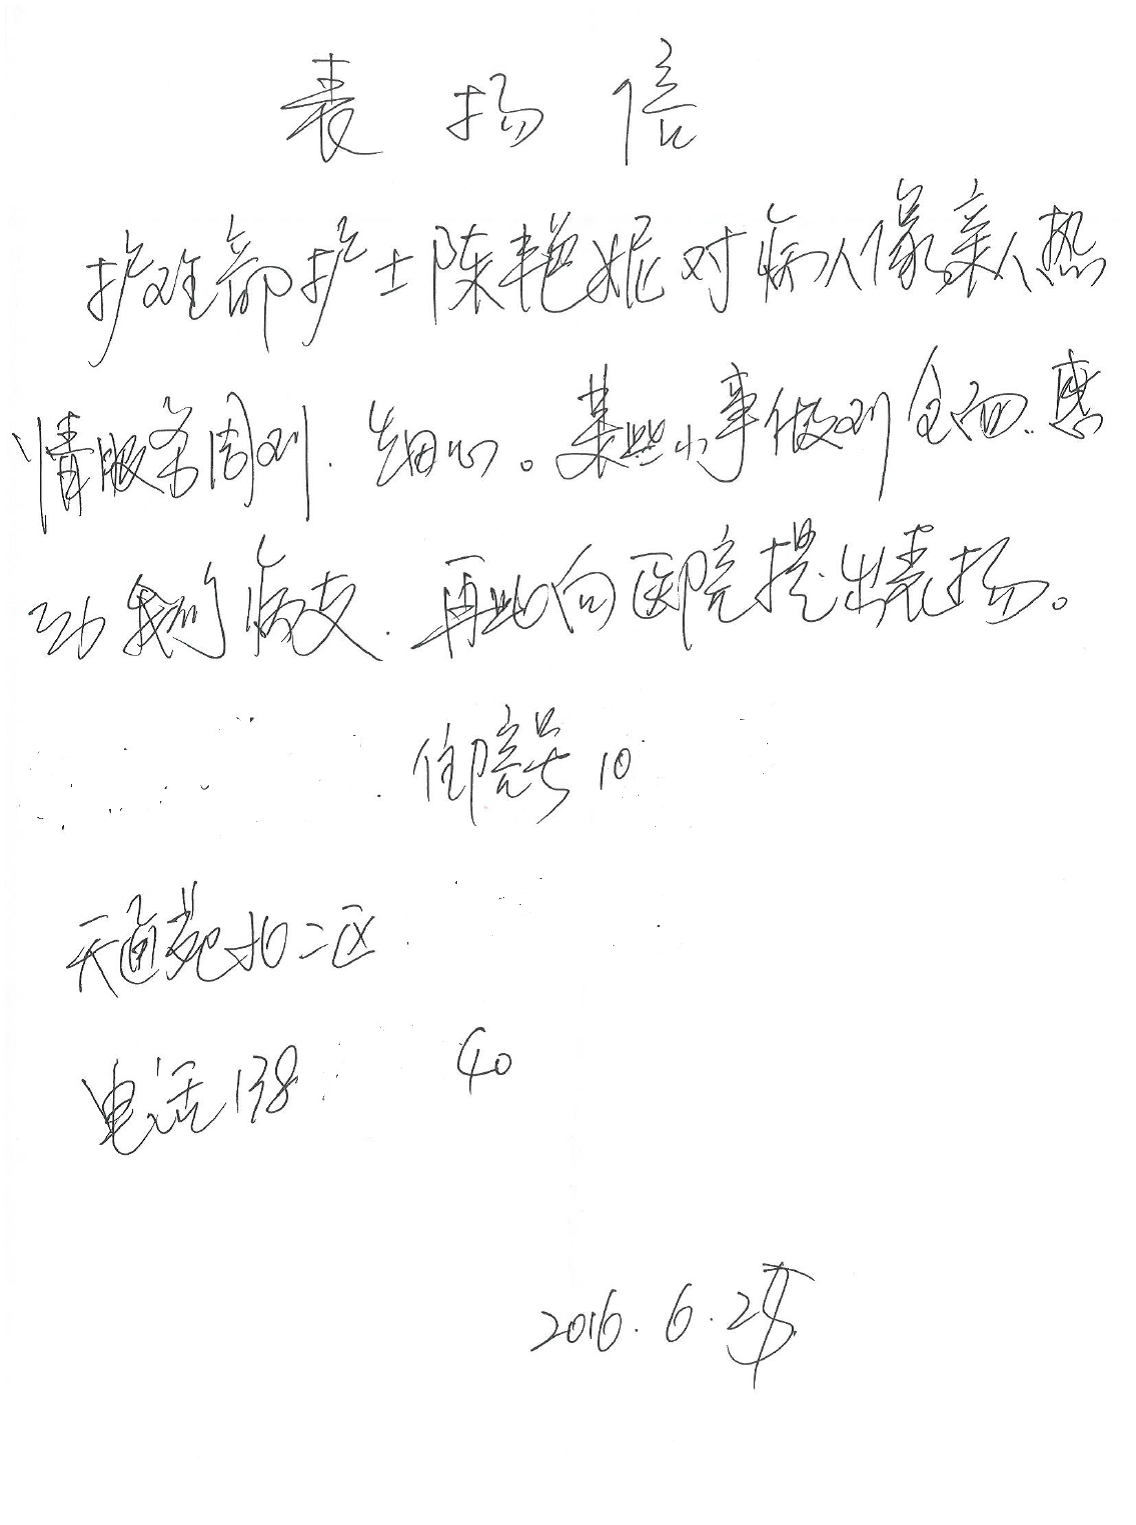 表扬信
护理部护士陈艳妮对病人像亲人热
情服务周到.细心。某些小事做到全面.感
动我们病友.再此向医院提出表扬。
住院号10
天通苑北二区
电话138 40
2016.6.2